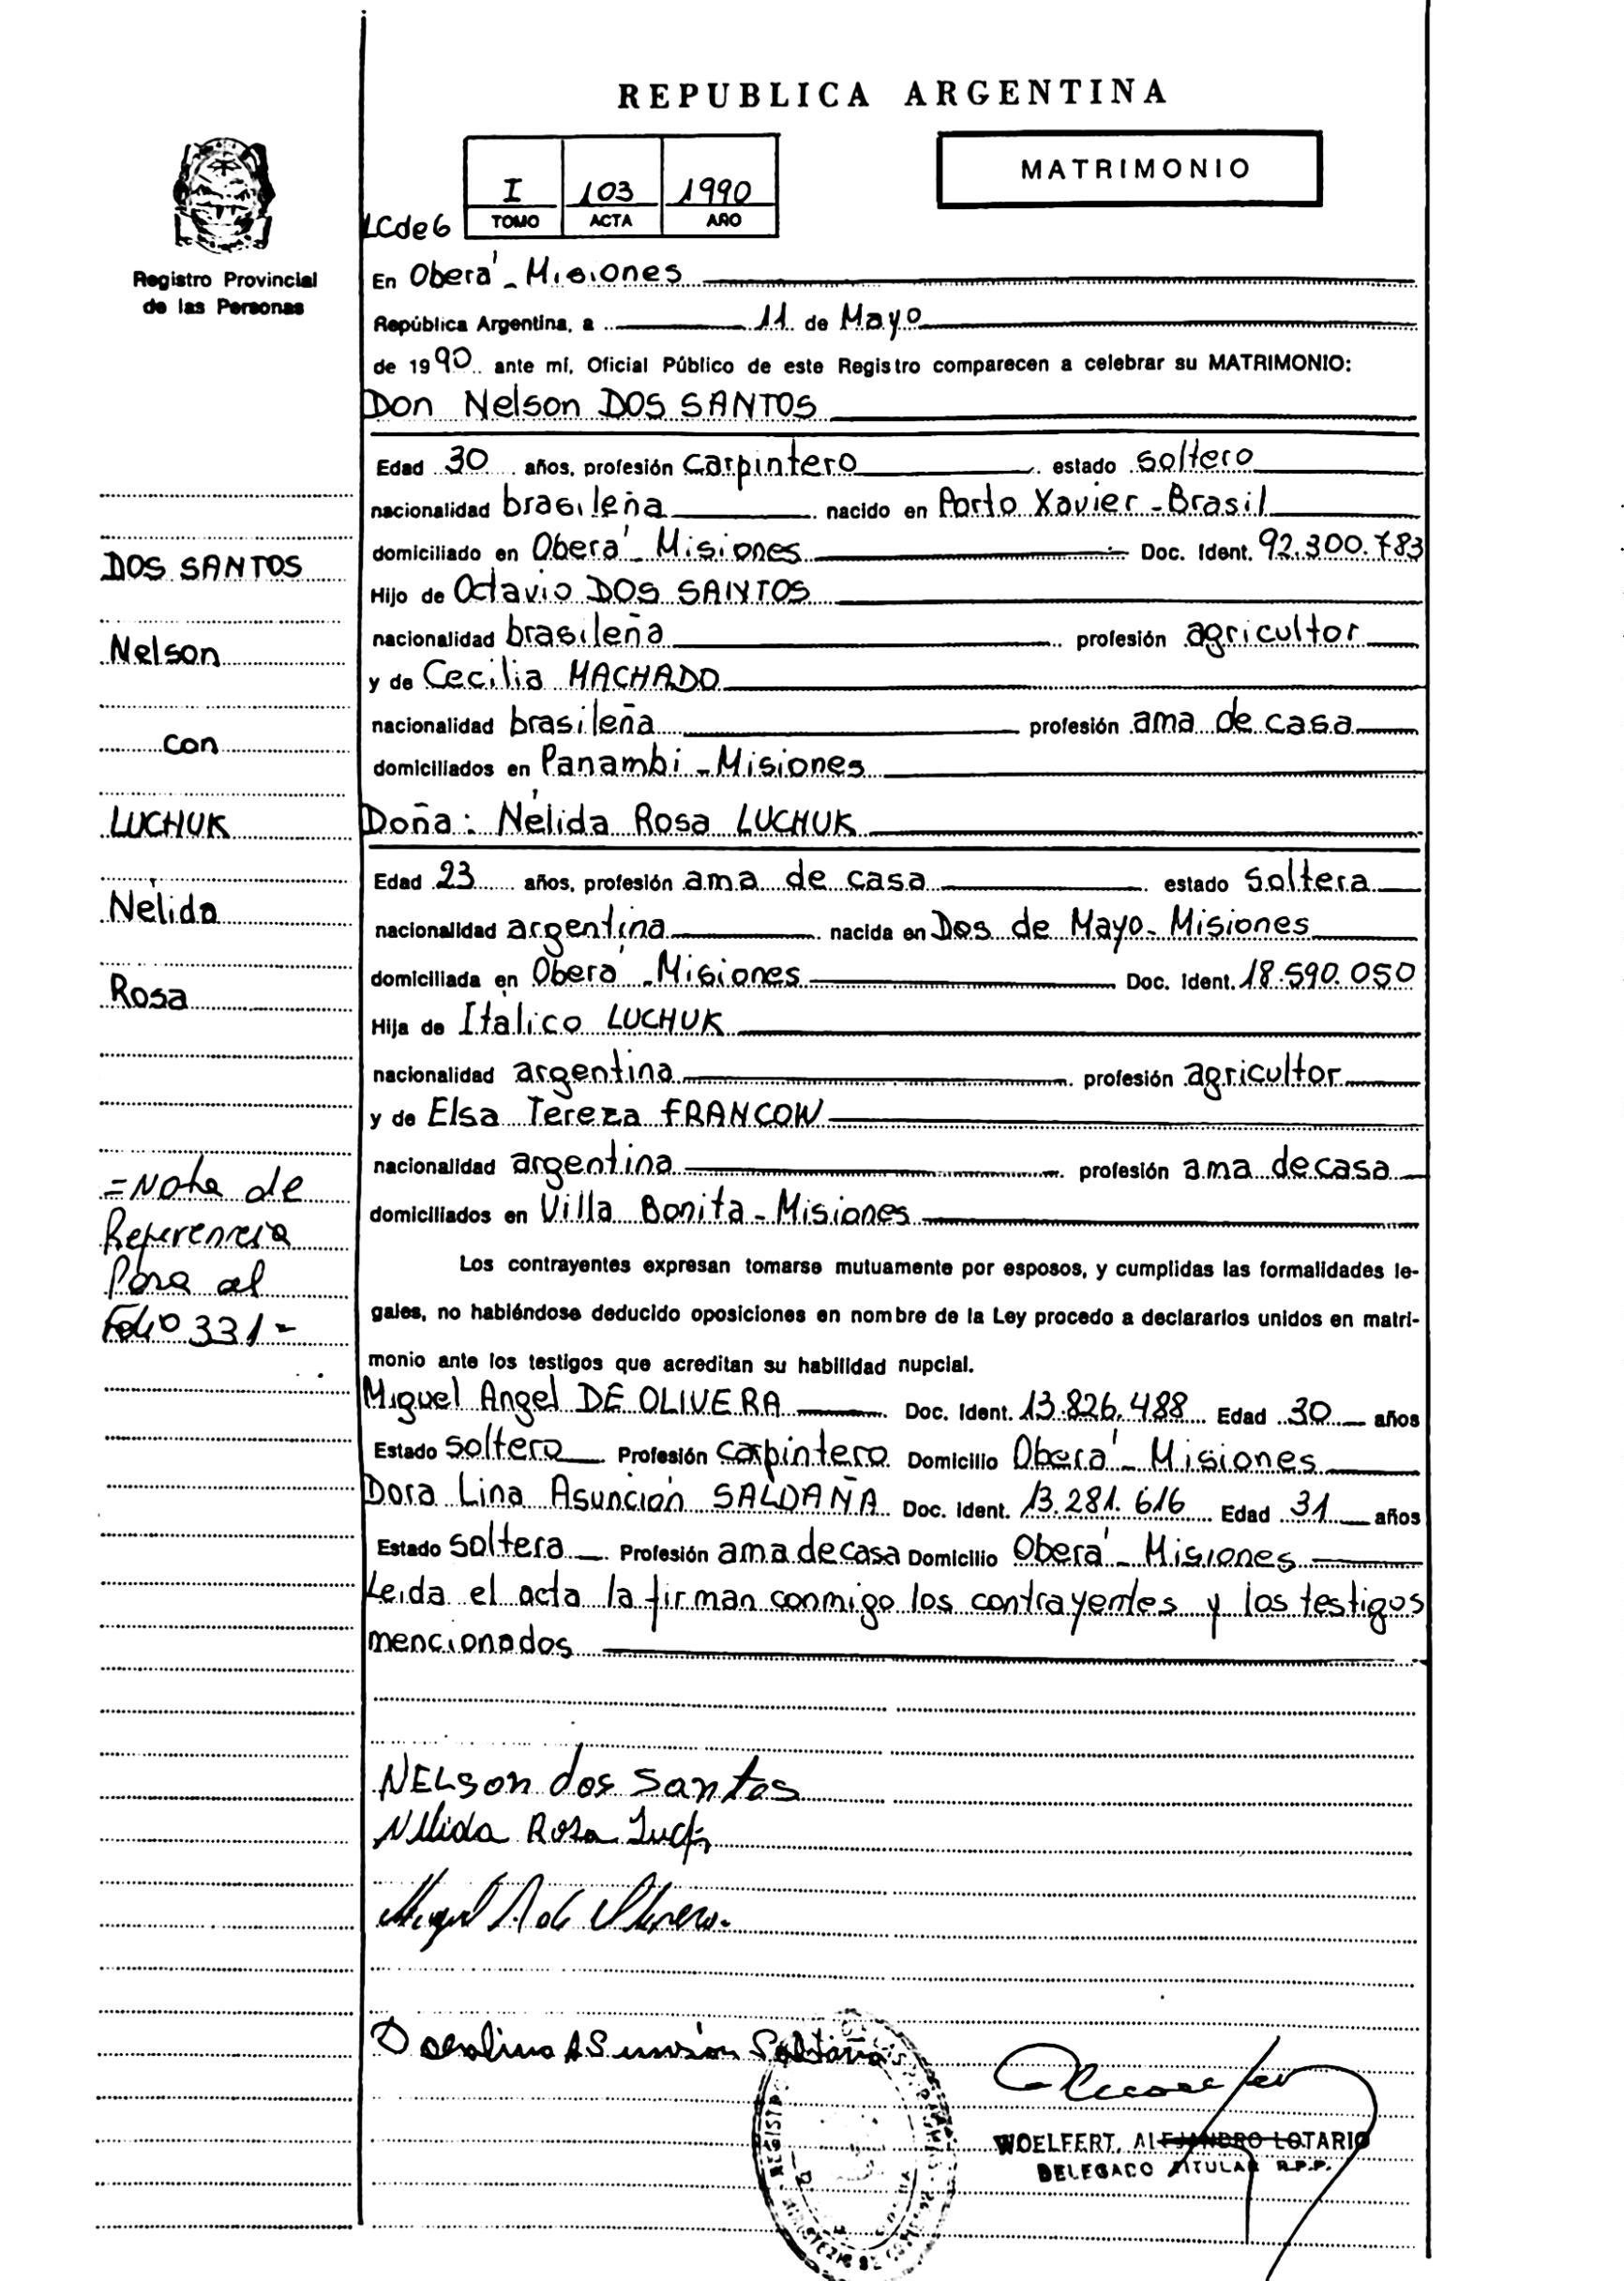 REPUBLICA ARGENTINA
MATRIMONIO
I 103 1990
LCde6 TOMO ACTA AÑO
Registro Provincial
de las Personas
En Oberá - Misiones
República Argentina, a 11 de Mayo
de 1990 ante mí, Oficial Público de este Registro comparecen a celebrar su MATRIMONIO:
Don Nelson DOS SANTOS
Edad 30 años, profesión carpintero estado soltero
nacionalidad brasileña nacido en Porto Xavier - Brasil
domiciliado en Oberá - Misiones Doc. Ident. 92.300.783
Hijo de Octavio DOS SANTOS
nacionalidad brasileña profesión agricultor
y de Cecilia MACHADO
nacionalidad brasileña profesión ama de casa
domiciliados en Panambi - Misiones
Doña: Nélida Rosa LUCHUK
Edad 23 años, profesión ama de casa estado soltera
nacionalidad argentina nacida en Dos de Mayo - Misiones
domiciliada en Oberá - Misiones Doc. Ident. 18.590.050
Hija de Itálico LUCHUK
nacionalidad argentina profesión agricultor
y de Elsa Tereza FRANCOW
nacionalidad argentina profesión ama de casa
domiciliados en Villa Bonita - Misiones
Los contrayentes expresan tomarse mutuamente por esposos, y cumplidas las formalidades le-
gales, no habiéndose deducido oposiciones en nombre de la Ley procedo a declararlos unidos en matri-
monio ante los testigos que acreditan su habilidad nupcial.
Miguel Angel DE OLIVERA Doc. Ident. 13.826.488 Edad 30 años
Estado soltero Profesión carpintero Domicilio Oberá - Misiones
Dora Lina Asunción SALDAÑA Doc. Ident. 13.281.616 Edad 31 años
Estado soltera Profesión ama de casa Domicilio Oberá - Misiones
Leida el acta la firman conmigo los contrayentes y los testigos
mencionados
DOS SANTOS
Nelson
con
LUCHUK
Nélida
Rosa
=Nota de
Referencia
Para al
Folio 331-
NELSon dos Santos
Nélida Rosa
Miguel A de Olivera
Doralina ASunsión Saldaña
WOELFERT, ALEJANDRO LOTARIO
DELEGADO TITULAR R.P.P.